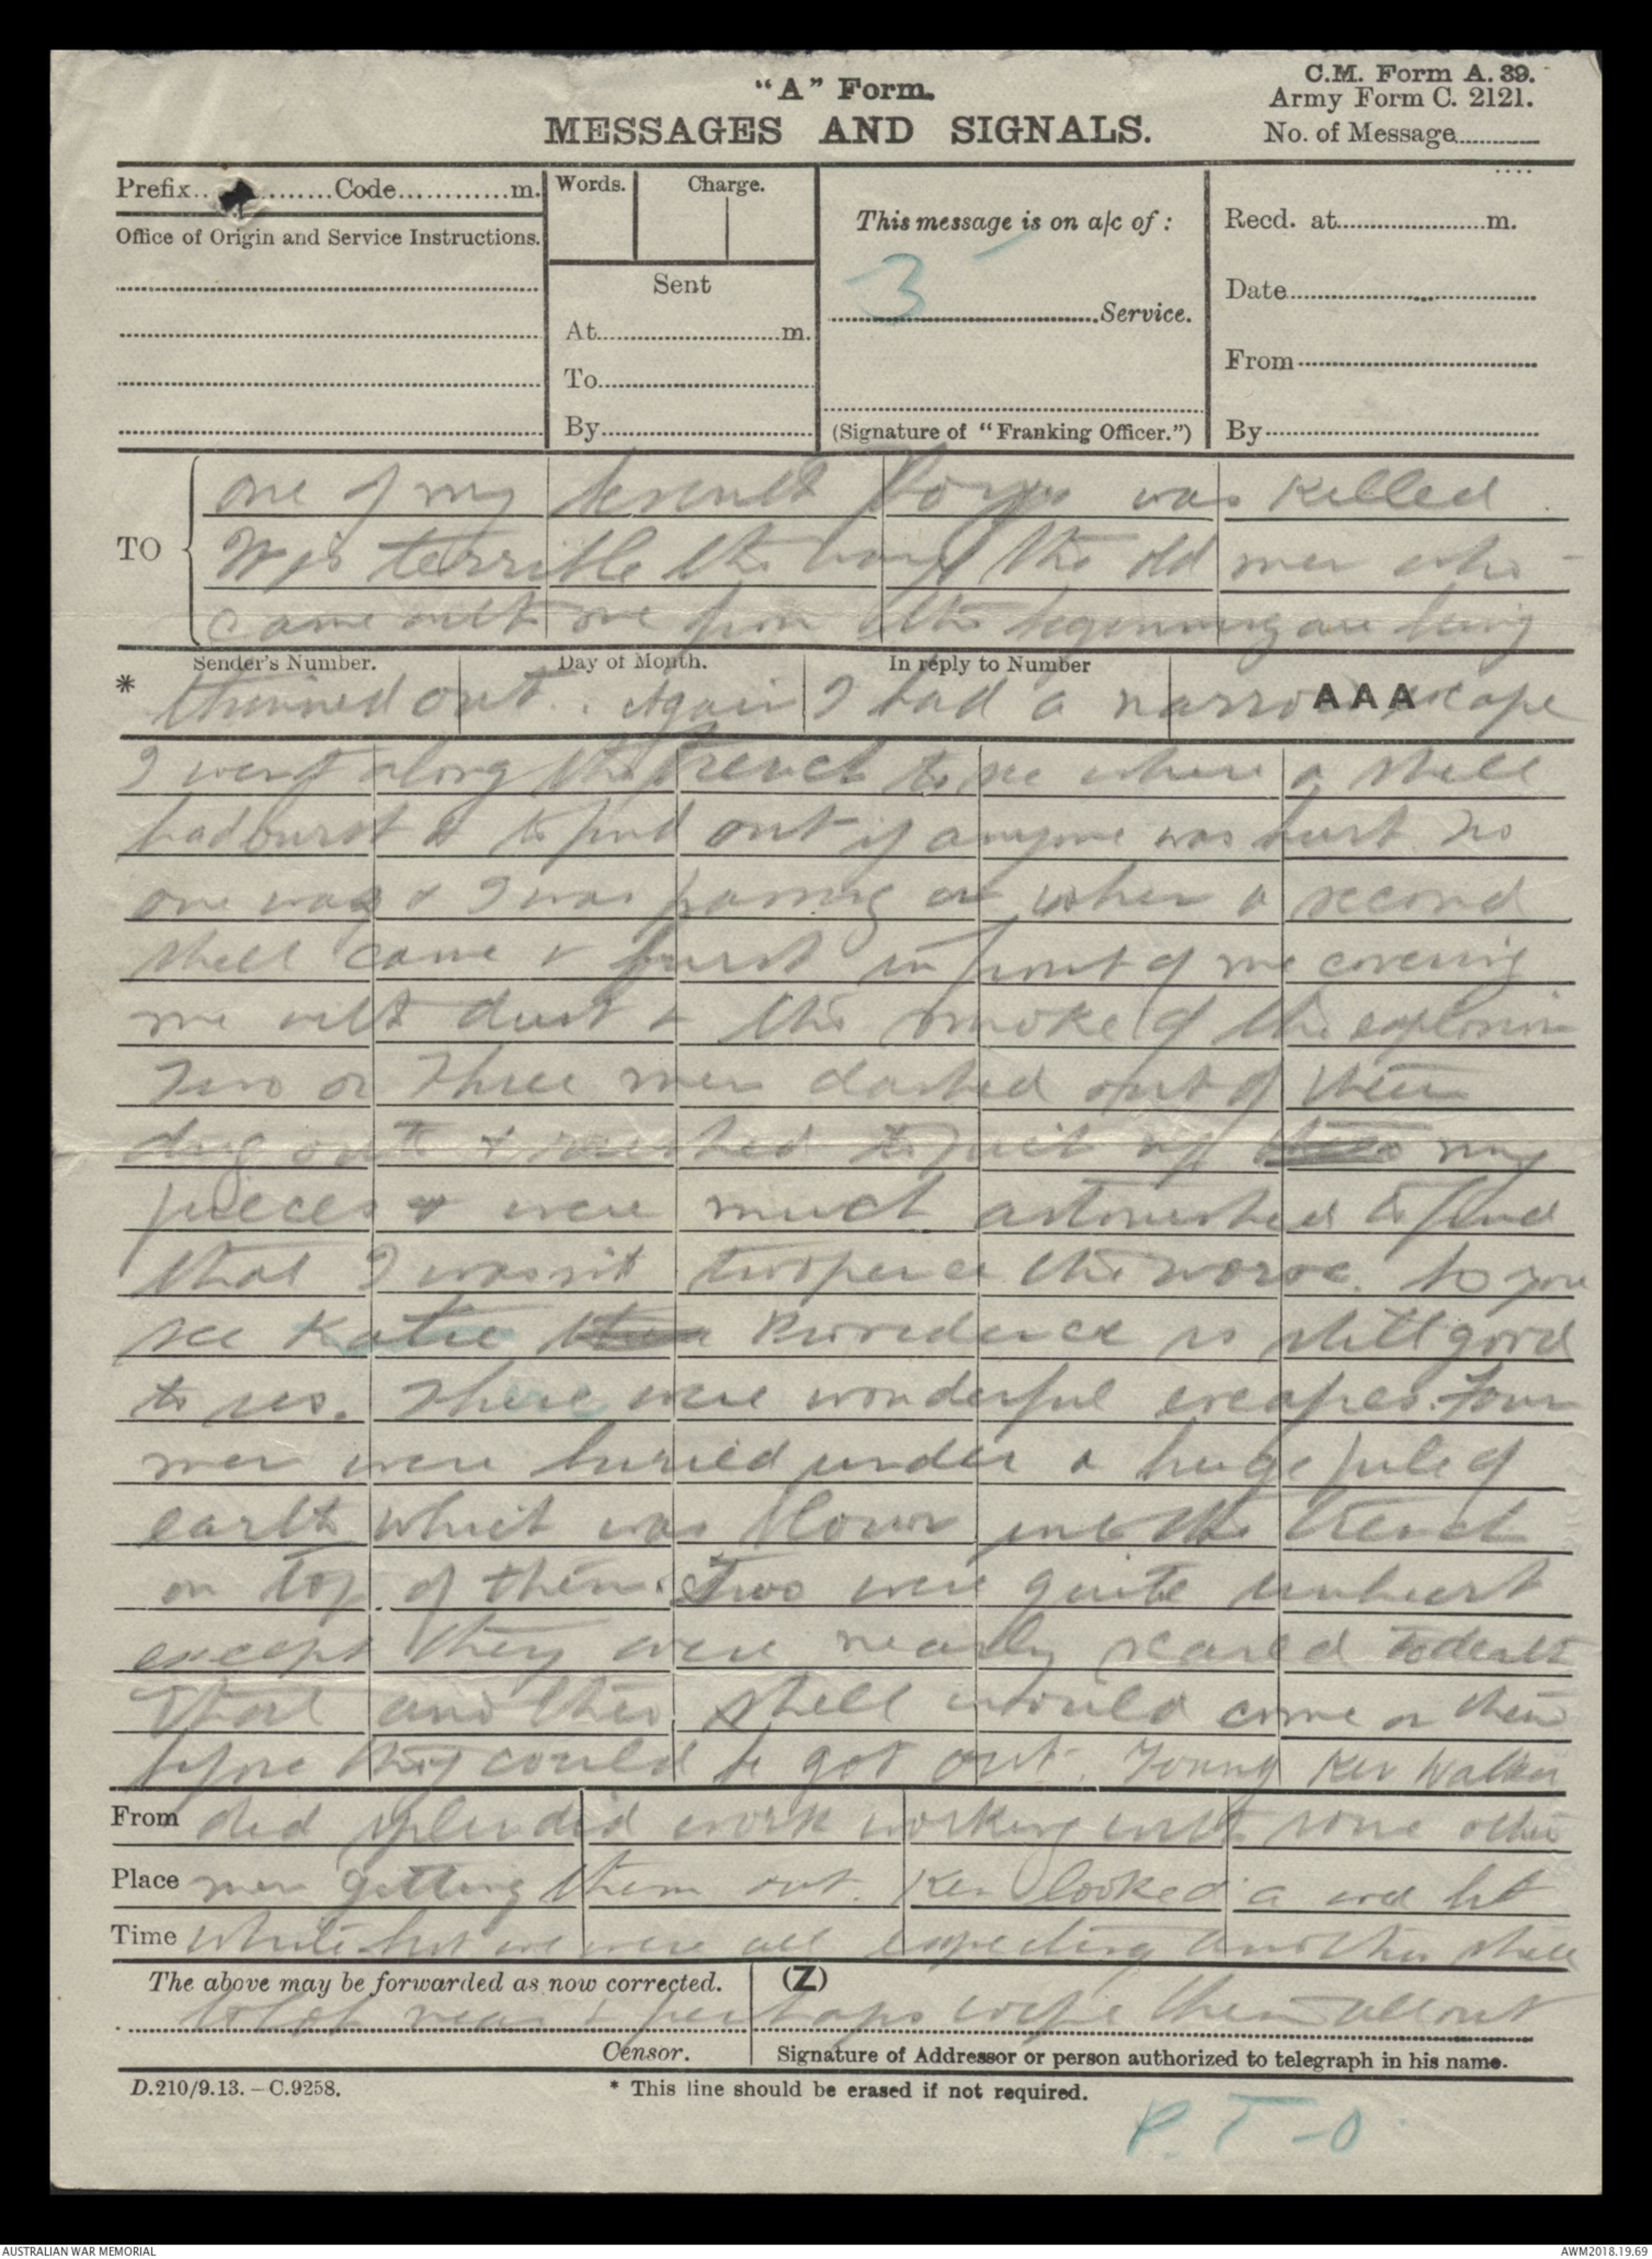 "A" Form.
MESSAGES AND SIGNALS.
C.M. Form A. 39.
Army Form C. 2121.
No. of Message............
Prefix............Code............m.
Office of Origin and Service Instructions.
Words.
Charge.
Sent
At............m.
To............
By............
This message is on a/c of :
3
............Service.
(Signature of "Franking Officer.")
Recd. at............m.
Date............
From............
By............
TO
one of my was killed.
It is terrible the way the old men who
came with me from the beginning are being
Sender's Number.
Day of Month.
In reply to Number
AAA
* thinned out. Again I had a narrow escape
I went along the trench to see where a shell
had burst & to find out if anyone was hurt. No
one was & I was passing on when a second
shell came & burst in front of me covering
me with dust & the smoke of the explosion
Two or three men dashed out of their
dug outs & rushed to pick up my
pieces & were much astonished to find
that I wasn't twopence the worse. So you
see Katie Providence is still good
to us. There were wonderful escapes. Four
men were buried under a huge pile of
earth which was blown into the trench
on top of them. Two were quite unhurt
except they were nearly scared to death
that another shell would come on them
before they could be got out. Young Kev Walker
From did splendid work working with some other
Place men getting them out. Kev looked a wee bit
Time white but we were all expecting another shell
The above may be forwarded as now corrected.
(Z)
to lob near & perhaps wipe them all out
Censor.
Signature of Addressor or person authorized to telegraph in his name.
D.210/9.13. – C.9258.
* This line should be erased if not required.
P.T-O.
AUSTRALIAN WAR MEMORIAL
AWM2018.19.69